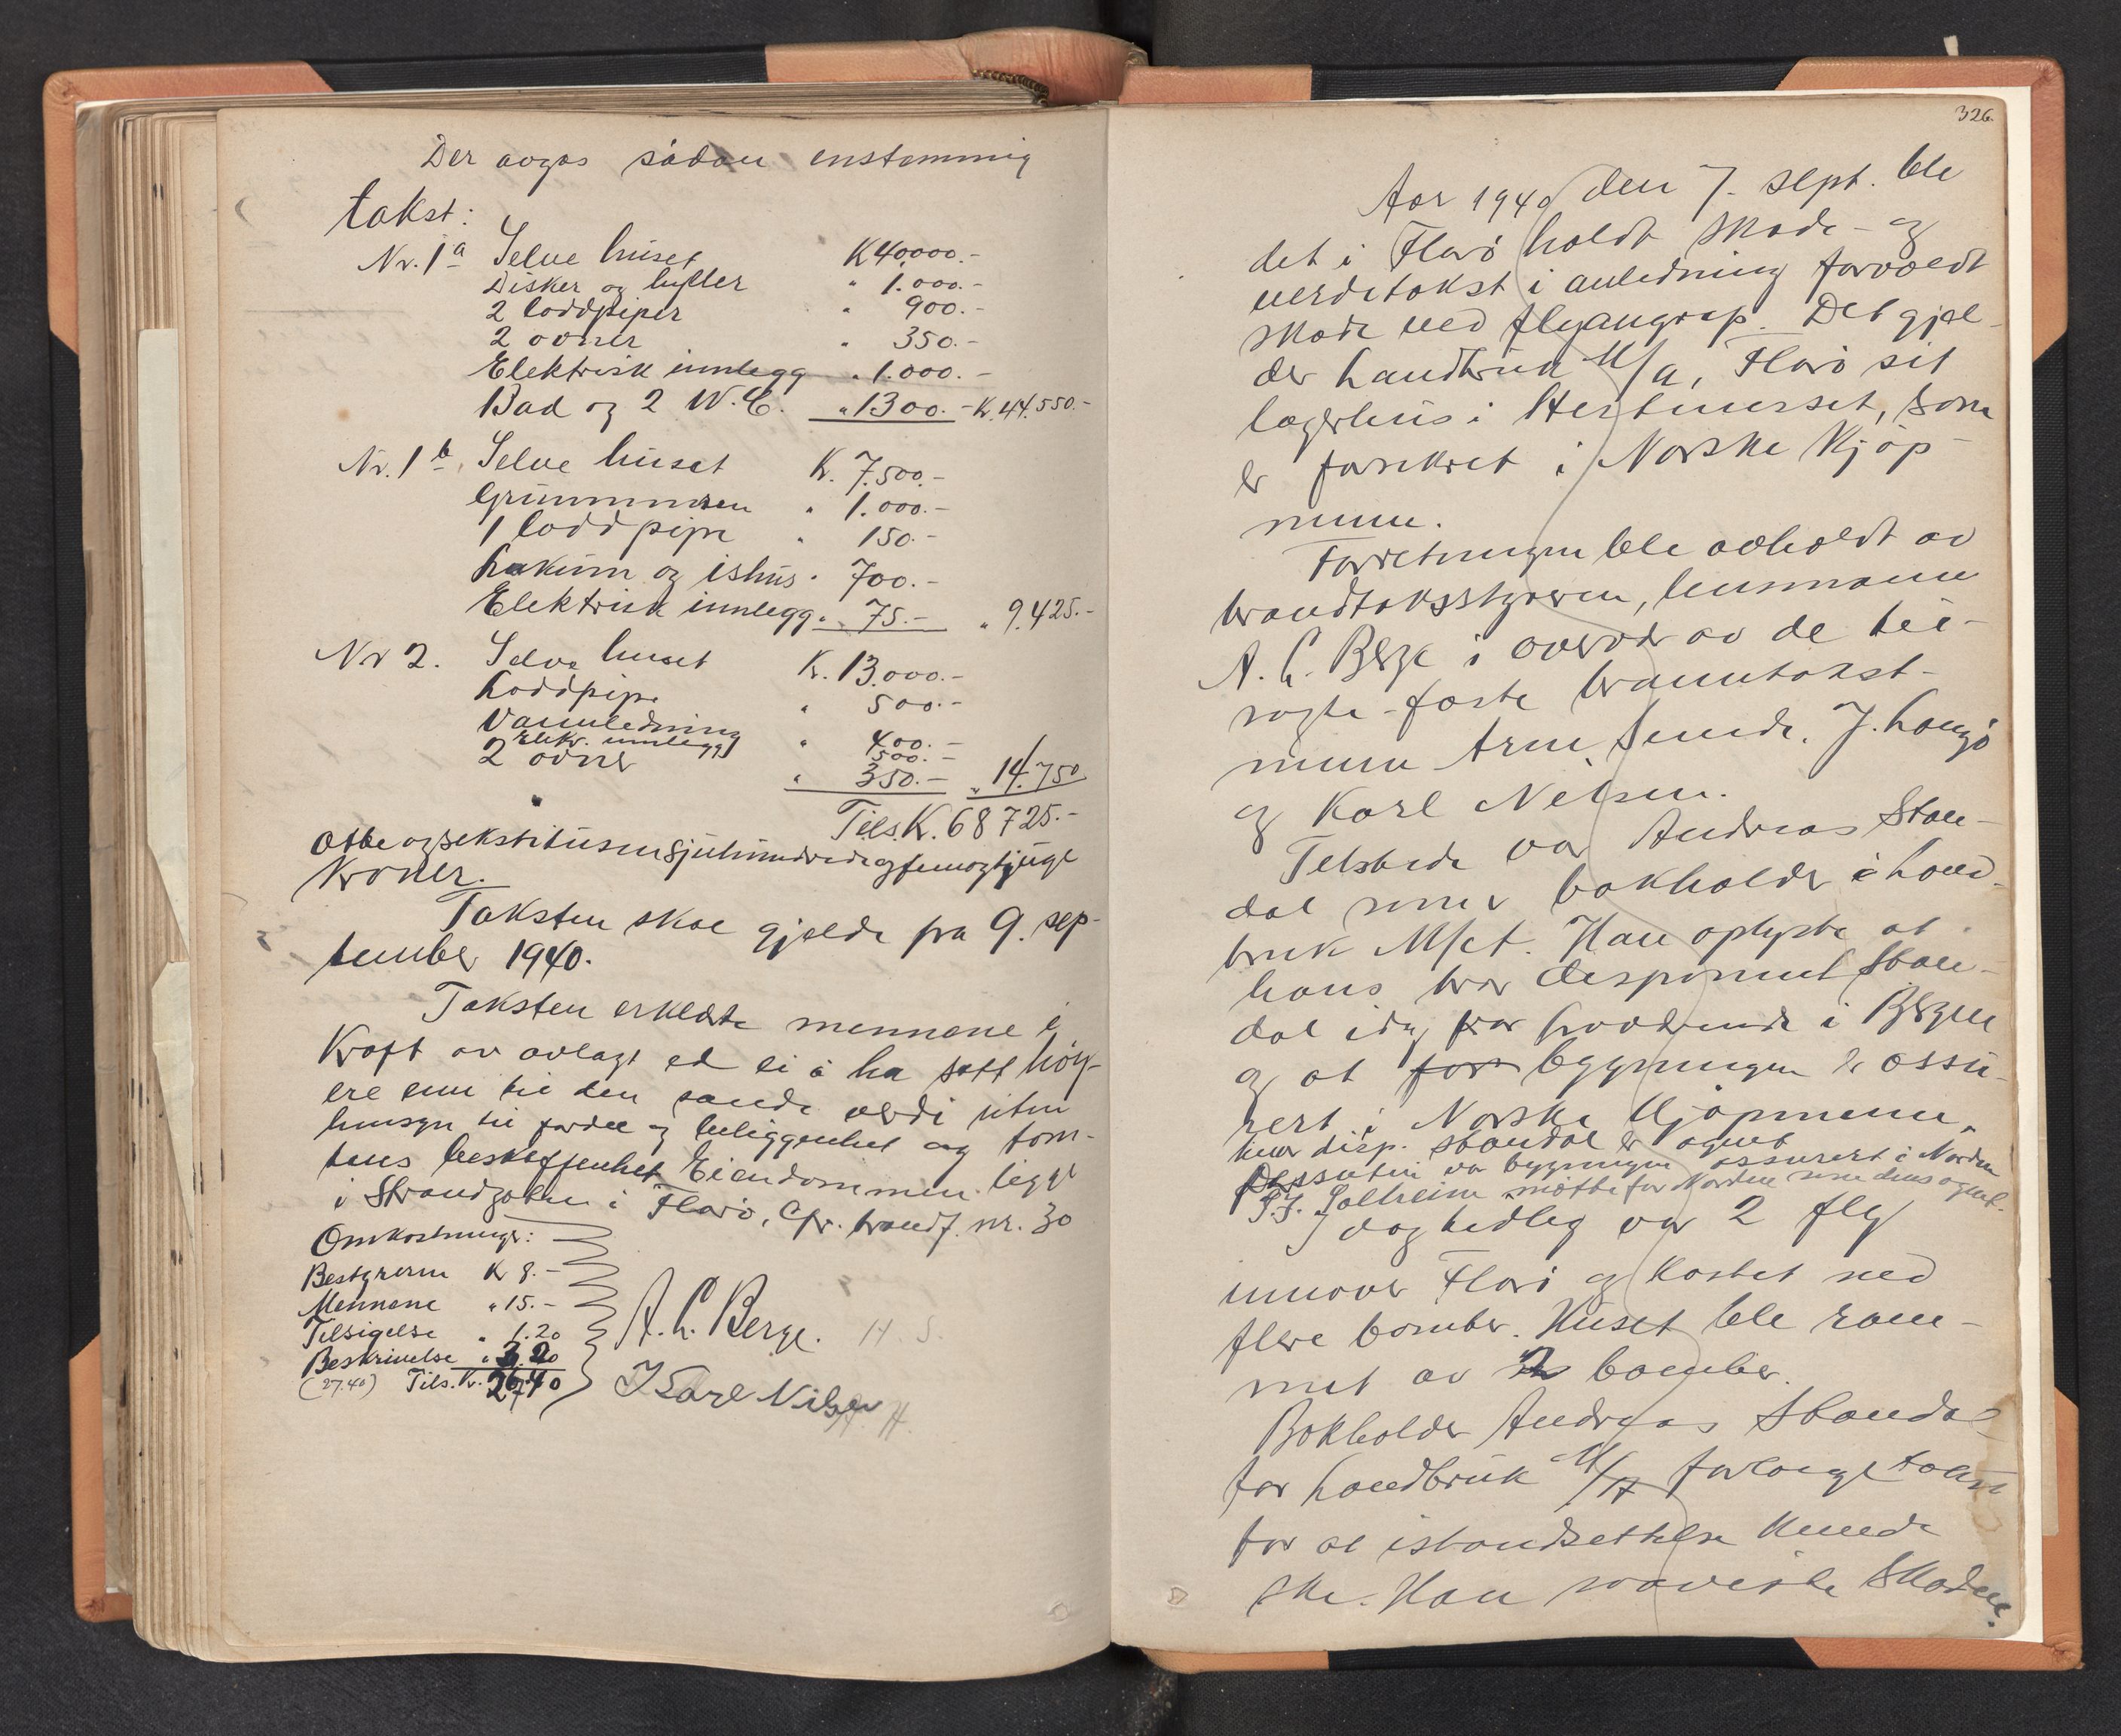 Der avgas sådan enstemmig
takst:
Nr. 1a Selve huset K 40000.-
Disker og hyller " 1.000.-
2 loddpiper " 900.-
2 ovner " 350.-
Elektrisk innlegg " 1.000.-
Bad og 2 W.C. " 1300.- K. 44.550.-
Nr. 1b Selve huset K. 7.500.-
Grunnmuren " 1.000.-
1 loddpipe " 150.-
Lakerum og ishus " 700.-
Elektrisk innlegg " 75.- " 9.425.-
Nr 2. Selve huset K. 13.000.-
Loddpipe " 500.-
Vannledning " 400.-
Elekr. innlegg 500.-
2 ovner " 350.- " 14.750
Tils. K. 68725.-
Otte og sekstitusen sjuhundrede og femogtjuge
Kroner.
Taksten skal gjelde fra 9. sep-
tember 1940.
Taksten erklærte mennene i
Kraft av avlagt ed ei å ha satt høi-
ere enn til den sande verdi uten
hensyn til fordel og beliggenhet og tom-
tens beskaffenhet. Eiendommen ligger
i Strandgaten i Florø, Cfr. brandf. nr. 30
Omkostninger:
Bestyreren K 8.-
Mennene " 15.-
Tilsigelse " 1.20
Beskrivelse " 3.20
(27.40) Tils. Kr. 27.40
A. L. Berge. H. S.
Karl Nilsen H.
326.
Aar 1940 den 7. sept. ble
det i Florø holdt skade- og
verditakst i anledning forvoldt
skade ved flyangrep. Det gjel-
der Landbruk A/a, Florø sit
lagerhus i Hestneset, som
er forsikret i Norske Kjøp-
menn.
Forretningen ble avholdt av
brandtakstbestyreren, lensmann
A. L. Berge i overvær av de til-
sagte faste branntakst-
menn Arne Sunde, J. Langø
og Karl Nilsen.
Tilstede var Andreas Stan-
dal som bokholder i Land-
bruk A/a. Han oplyste at
hans bror disponent Stan-
dal idag var fraværende i Bergen
og at for bygningen er assu-
rert i Norske Kjøpmenn,
hvor disp. Standal er agent.
Dessuten var bygningen assurert i Norden
S. J. Solheim møtte for Norden som dens agent.
I dag tidlig var 2 fly
innover Florø og kastet ned
flere bomber. Huset ble ram-
met av 2 bomber.
Bokholder Andreas Standal
for Landbruk A/A forlangte takst
for at istandsettelse kunde
ske. Han påviste skaden.